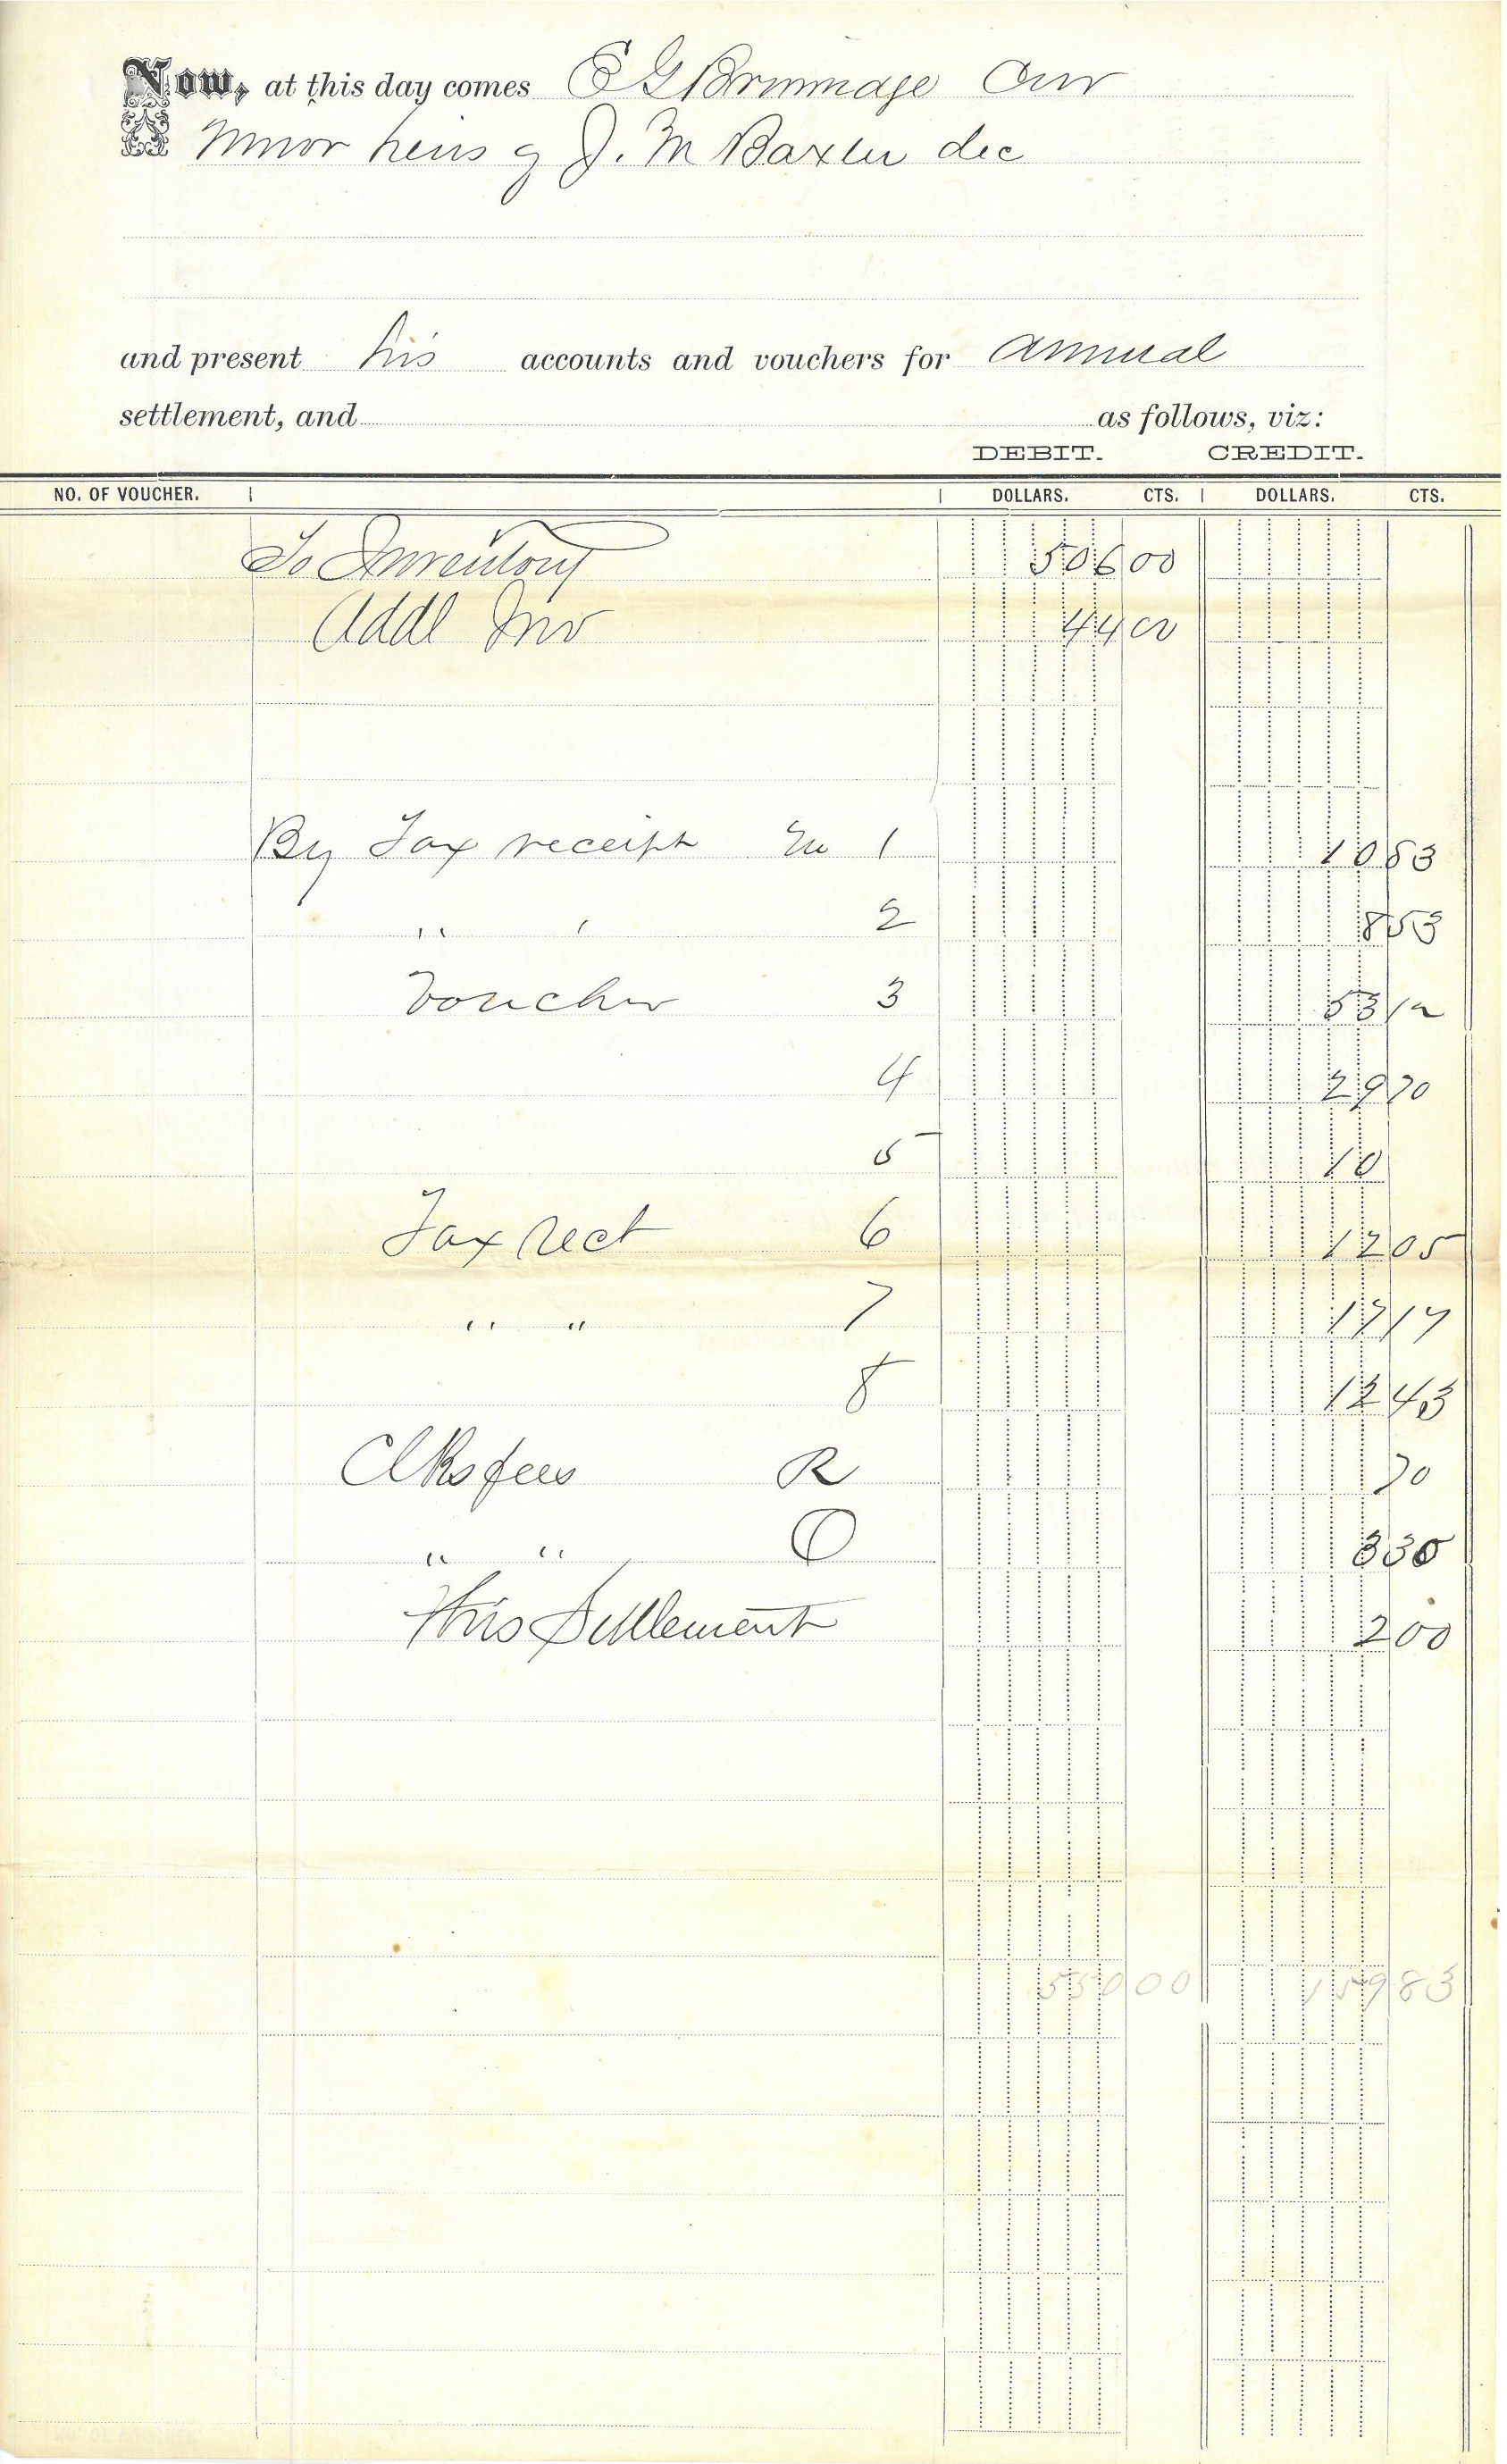 Now, at this day comes E G Brummage Cur
Minor heirs of J. M Baxter dec
and present his accounts and vouchers for annual
settlement, and as follows, viz:
DEBIT. CREDIT.
NO. OF VOUCHER. DOLLARS. CTS. DOLLARS. CTS.
To Inventory 506 00
Addl Inv 44 00
By Tax receipt No 1 10 83
" " 2 8 53
Voucher 3 53 12
4 29 70
5 10
Tax Rect 6 12 05
" " 7 17 17
8 12 43
Clks fees R 70
" " O 3 30
This Settlement 2 00
550 00 159 83